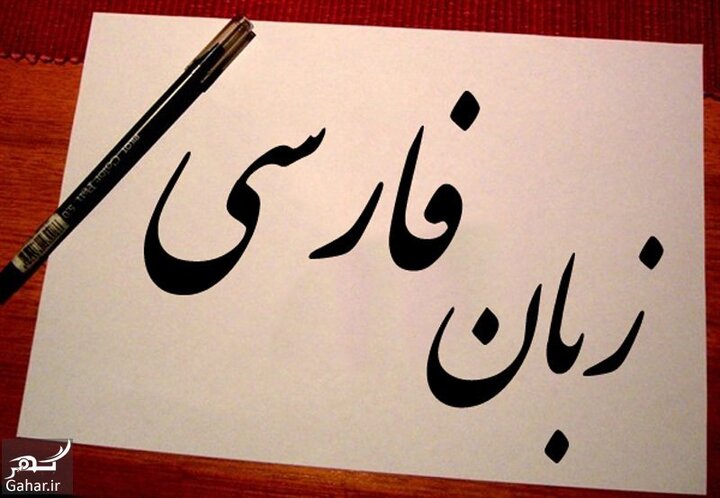 زبان
فارسی
Gahar.ir